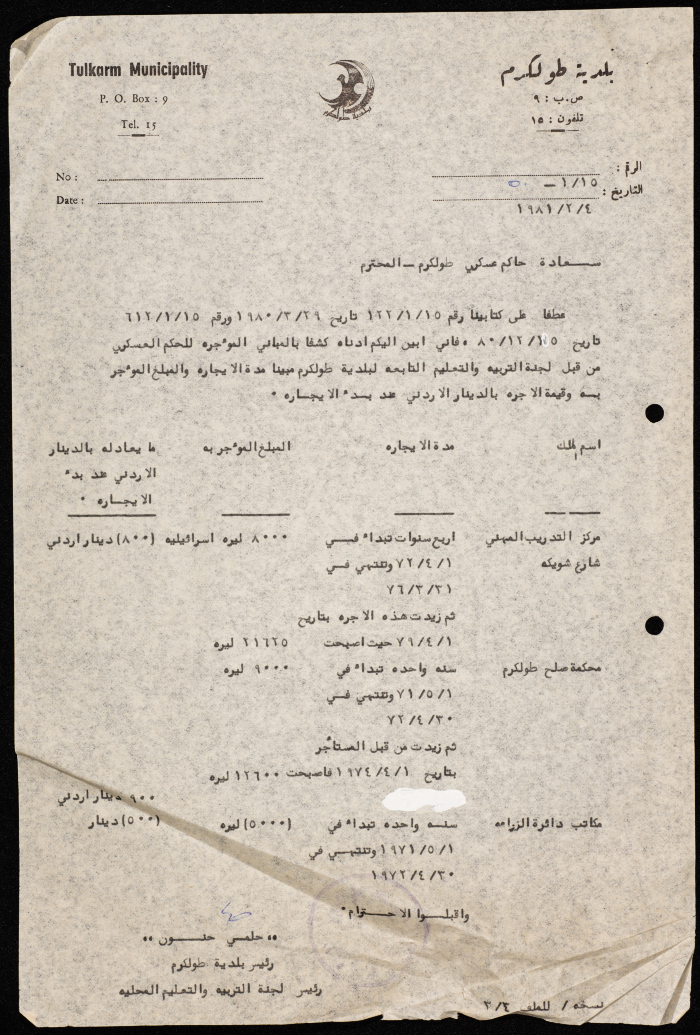 Tulkarm Municipality
P. O. Box : 9
Tel. 15
بلدية طولكرم
ص.ب : ٩
تلفون : ١٥
No :
Date :
الرقم : ١/١٥ —
التاريخ : ١٩٨١/٢/٤
سعادة حاكم عسكري طولكرم – المحترم
عطفا على كتابينا رقم ١٢٢/١/١٥ تاريخ ١٩٨٠/٣/٢٩ ورقم ٦١٢/١/١٥
تاريخ ٨٠/١٢/١٥ ، فاني ابين اليكم ادناه كشفا بالمباني الموءجره للحكم العسكري
من قبل لجنة التربيه والتعليم التابعه لبلدية طولكرم مبينا مدة الايجاره والمبلغ الموءجر
بسه وقيمة الاجره بالدينار الاردني عند بدء الايجاره .
اسم الملك    مدة الايجاره    المبلغ الموءجر به    ما يعادله بالدينار
الاردني عند بدء
الايجاره .
مركز التدريب المهني    اربع سنوات تبداء في    ٨٠٠٠ ليره اسرائيليه    (٨٠٠) دينار اردني
شارع شويكه    ٧٢/٤/١ وتنتهي في
٧٦/٣/٣١
ثم زيدت هذه الاجره بتاريخ
٧٩/٤/١ حيث اصبحت    ٢١٦٢٥ ليره
محكمة صلح طولكرم    سنه واحده تبداء في    ٩٠٠٠ ليره
٧١/٥/١ وتنتهي في
٧٢/٤/٣٠
ثم زيدت من قبل المستأجر
بتاريخ ١٩٧٤/٤/١ فاصبحت ١٢٦٠٠ ليره
٩٠٠ دينار اردني
مكاتب دائرة الزراعه    سنه واحده تبداء في    (٥٠٠٠) ليره    (٥٠٠) دينار
١٩٧١/٥/١ وتنتهي في
١٩٧٢/٤/٣٠
واقبلوا الاحترام .
،، حلمي حنون ،،
رئيس بلدية طولكرم
رئيس لجنة التربيه والتعليم المحليه
نسخه / للملف ٣/٣